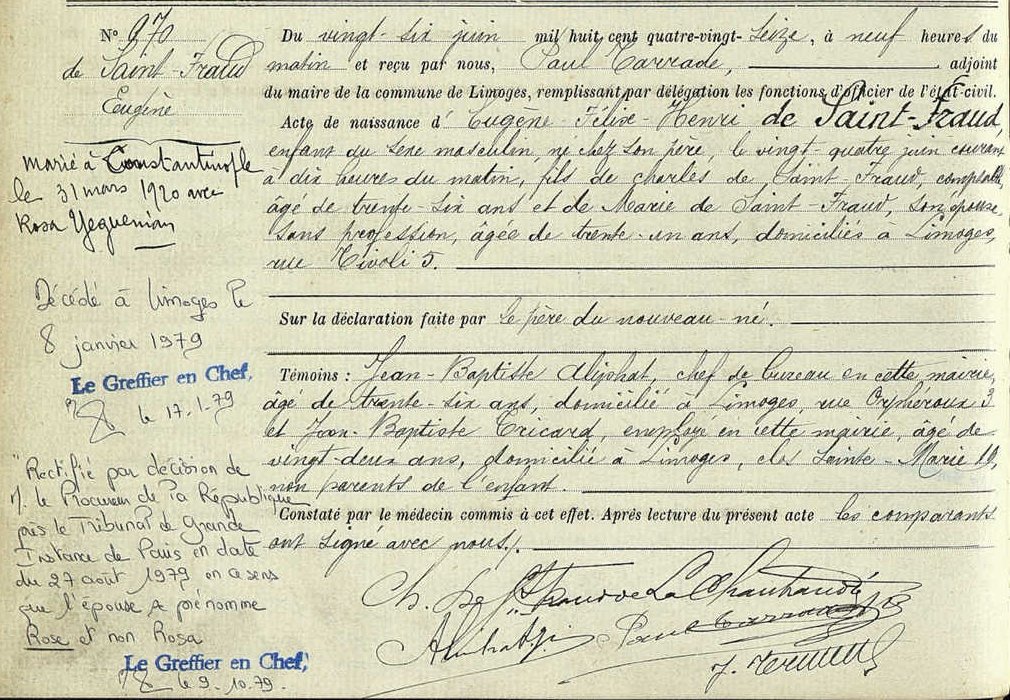 N° 970
de Saint-Fraud
Eugène
marié à Constantinople
le 31 mars 1920 avec
Rosa Yeguenian
Décédé à Limoges le
8 janvier 1979
Le Greffier en Chef,
le 17.1.79
"Rectifié par décision de
M. le Procureur de la République
près le Tribunal de Grande
Instance de Paris en date
du 27 août 1979 en ce sens
que l'épouse se prénomme
Rose et non Rosa
Le Greffier en Chef,
le 9.10.79.
Du vingt-six juin mil huit cent quatre-vingt-seize, à neuf heures du
matin et reçu par nous, Paul Carrade, adjoint
du maire de la commune de Limoges, remplissant par délégation les fonctions d'officier de l'état-civil.
Acte de naissance d' Eugène-Félix-Henri de Saint-Fraud,
enfant du sexe masculin, né chez son père, le vingt-quatre juin courant
à dix heures du matin, fils de Charles de Saint-Fraud, comptable,
âgé de trente-six ans et de Marie de Saint-Fraud, son épouse,
sans profession, âgée de trente-un ans, domiciliés à Limoges,
rue Tivoli 5.
Sur la déclaration faite par le père du nouveau-né.
Témoins : Jean-Baptiste chef de bureau en cette mairie,
âgé de trente-six ans, domicilié à Limoges, rue 3
et Jean-Baptiste Tricard, employé en cette mairie, âgé de
vingt-deux ans, domicilié à Limoges, clos Sainte-Marie 10,
non parents de l'enfant.
Constaté par le médecin commis à cet effet. Après lecture du présent acte les comparants
ont signé avec nous./.
Ch. de St Fraud de La
Paul Carrade